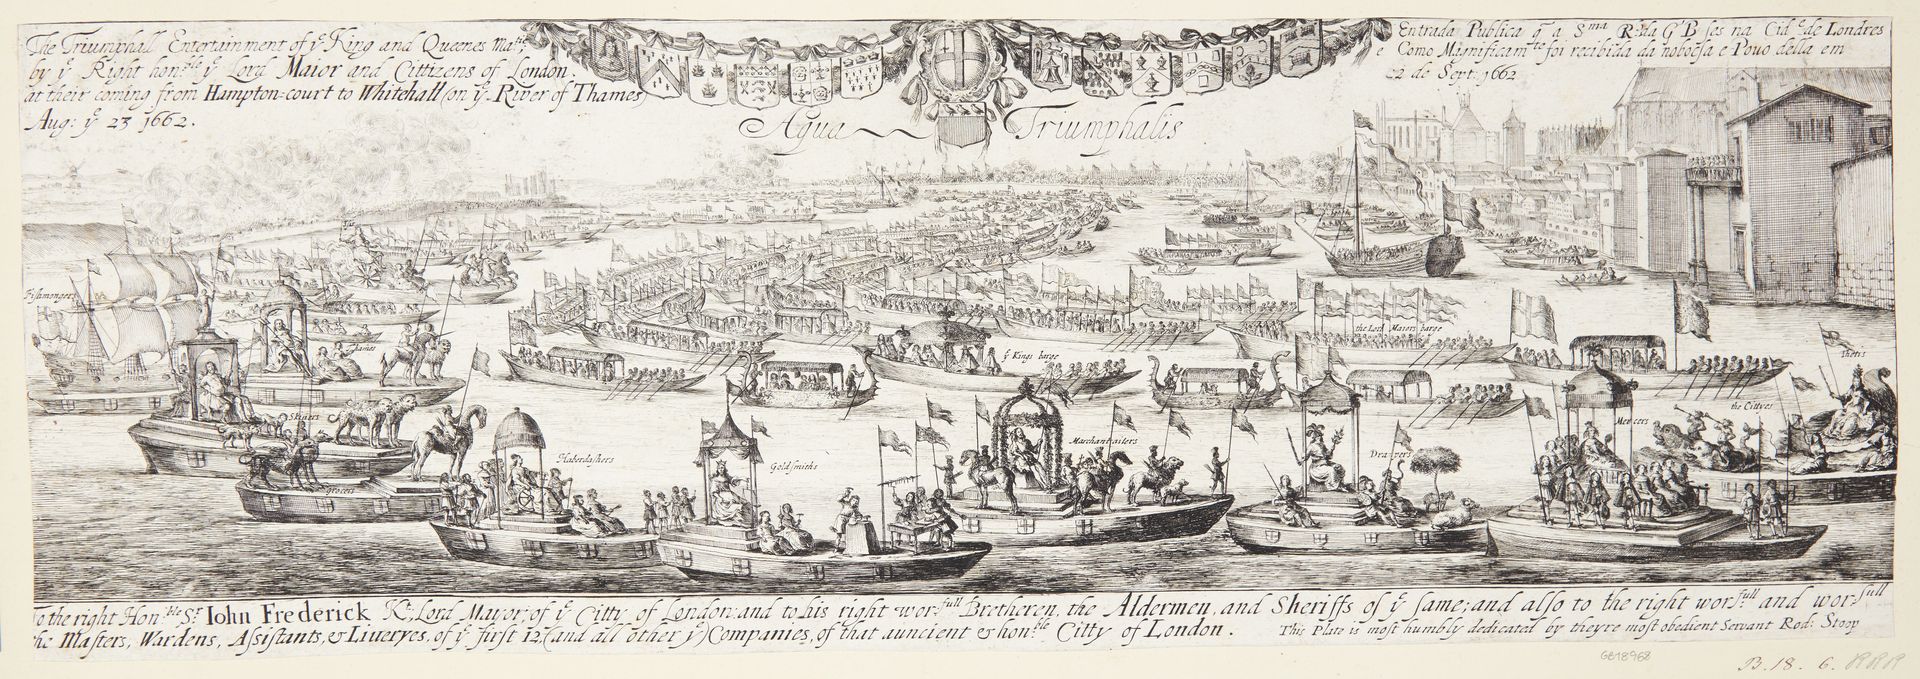 The Triumphall Entertainment of yᵉ King and Queenes Maᵗⁱᵉˢ
by yᵉ Right honᵇˡᵉ yᵉ Lord Maior and Cittizens of London:
at their coming from Hampton-court to Whitehall (on yᵉ River of Thames
Aug: yᵉ 23 1662.
Entrada Publica q̃ a Sᵐᵃ Rᵃ da G B fes na Cidᵉ de Londres
e Como Magnificamᵗᵉ foi recibida da nobocsa e Pouo della em
2 de Sept. 1662
Aqua Triumphalis
Fishmongers
Thames
Skiners
Grocers
Haberdashers
Goldsmiths
yᵉ Kings barge
Marchantaiters
the Lord Maiors barge
Drapers
Mercers
the Cittyes
Thetis
To the right Honᵇˡᵉ Sʳ Iohn Frederick Kᵗ, Lord Mayor, of yᵉ Citty of London: and to his right worˢᶠᵘˡˡ Bretheren, the Aldermen, and Sheriffs of yᵉ same; and also to the right worˢᶠᵘˡˡ and worˢᶠᵘˡˡ
the Masters, Wardens, Assistants, & Liueryes, of yᵉ first 12, (and all other yᵉ) Companies, of that auncient & honᵇˡᵉ Citty of London.
This Plate is most humbly dedicated by theyre most obedient Servant Rod: Stoop
GB18968
B. 18. 6.